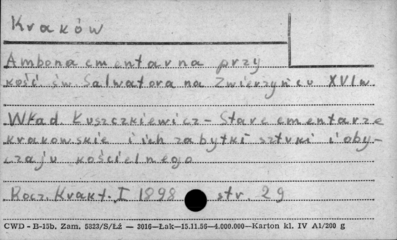 Kraków
Ambona cmentarna przy
kość św. Salwatora na Zwierzyńcu XVI w.
Wład. Łuszczkiewicz - Stare cmentarze
krakowskie i ich zabytki sztuki i oby-
czaju kościelnego
Rocz. Krak. I 1898 str. 29
CWD - B-15b. Zam. 5023/S/Łż — 3016—Łak—15.11.56—4.000.000—Karton kl. IV A1/200 g